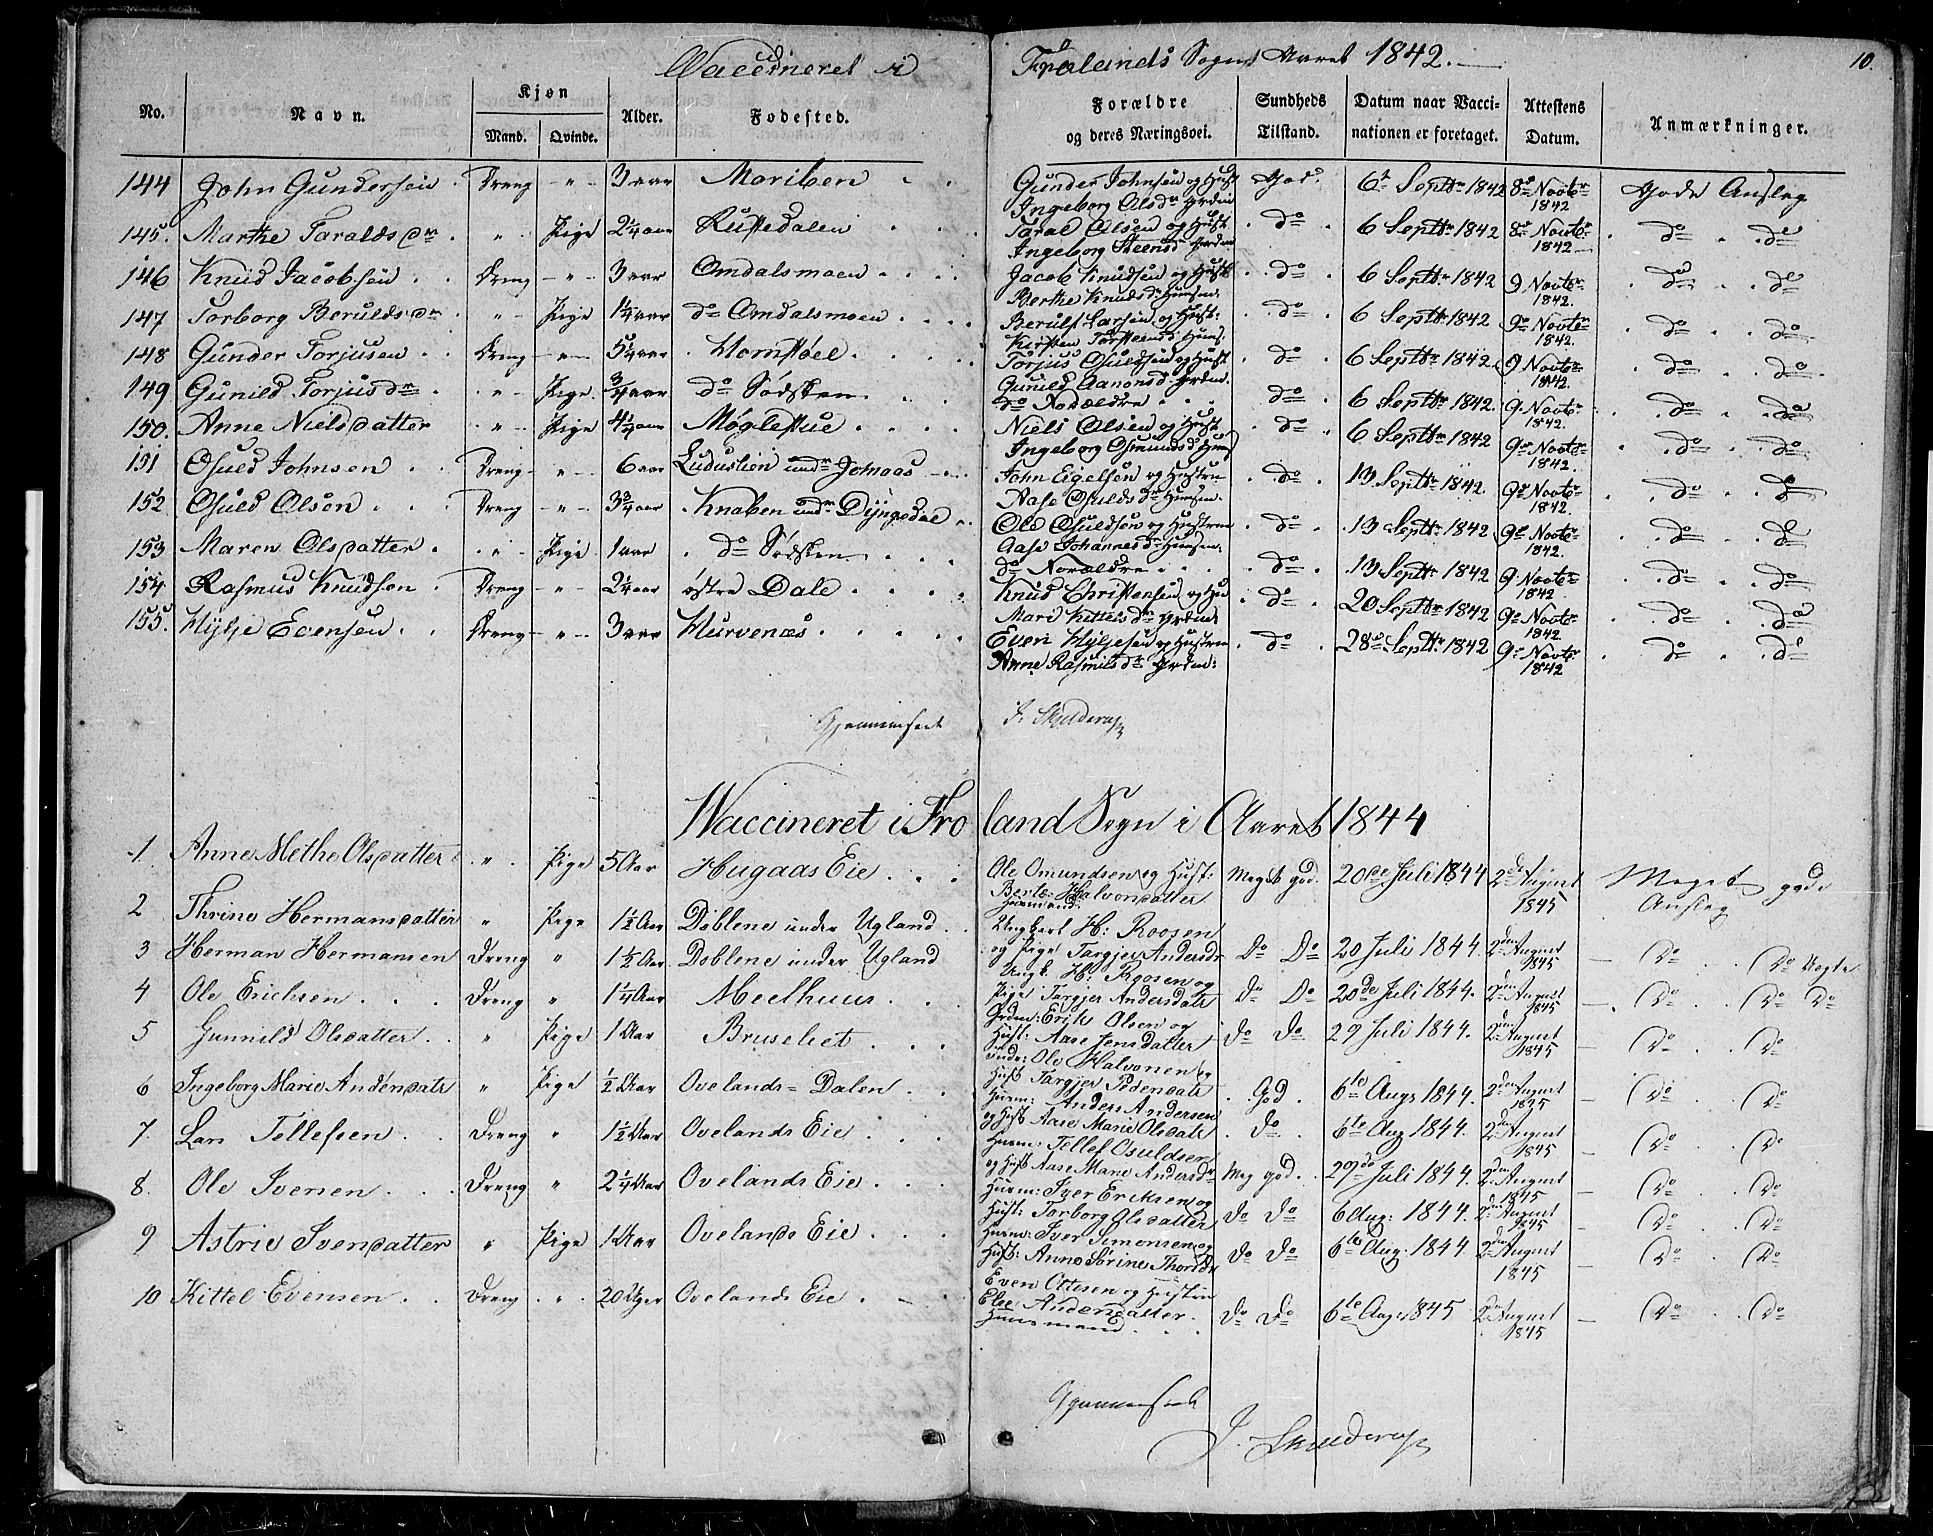 Vaccineret i Frolands Sogn Aaret 1842.
10.
No. Navn. Kjøn Alder. Fødested. Forældre og deres Næringsvei. Sundheds Tilstand. Datum naar Vaccinationen er foretaget. Attestens Datum. Anmærkninger.
Mand. Qvinde.
144 John Gundersen Dreng " 3 aar Moriben Gunder Johnsen og Hust Ingeborg Olsdr God. 6te Septbr 1842 8de Novbr 1842 Gode Anslag
145. Marthe Taraldsdr " Pige 2¼ aar Rustedalen Taral Olsen og Hust Ingeborg Steensd do 6 Septbr 1842 8de Novbr 1842 do do
146 Knud Jacobsen Dreng " 3 aar Omdalsmoen Jacob Knudsen og Hust Berthe Knudsdr Huusm. do 6 Septbr 1842 9 Novbr 1842. do do
147 Torborg Beruldsdr " Pige 1¼ aar do Omdalsmoen Berulf Larsen og Hust: Kirsten Torstensd Huusm. do 6 Septbr 1842 9de Novbr 1842. do do
148 Gunder Torjusen Dreng " 5¼ aar Hornstøel. Torjus Osuldsen og Hust Gunild Aanonsd do 6 Septbr 1842 9 Novbr 1842. do do
149 Gunild Torjusdr " Pige ¾ aar do Sødsken do Forældre do 6 Septbr 1842. 9 Novbr 1842. do do
150. Anne Nielsdatter " Pige 4¼ aar Møglestue Niels Olsen og Hust Ingeborg Osmundsd Huusm do 6 Septbr 1842 9de Novbr 1842. do do
151 Osuld Johnsen Dreng " 6 aar Ludustien undr Johnaas John Eigelsen og Hustru Aase Osuldsdr Huusm. do 13 Septbr 1842. 9de Novbr 1842. do do
152 Osuld Olsen Dreng " 3¾ aar Knaben undr Dyngedal Ole Osuldsen og Hustrue Aase Johannesdr Huusm. do 13 Septbr 1842 9de Novbr 1842. do do
153 Maren Olsdatter " Pige 1 aar do Sødsken do Forældre do 13 Septbr 1842 9 Novbr 1842. do do
154 Rasmus Knudsen Dreng " 2¼ aar østre Dale Knud Christensen og Hu Mari Kittelsdr do 20 Septbr 1842 9de Novbr 1842 do do
155. Hylje Evensen Dreng " 3 aar Hurvenæs Even Hyljesen og Hustrue Anne Rasmusdr do 28de Septbr 1842 9de Novbr 1842 do do
Gjennemseet J. Skjelderup
Waccineret i Froland Sogn i Aaret 1844
1. Anne Methe Olsdatter " Pige 5 Aar Hugaas Eie Ole Omundsen og Hust: Berte Halvorsdatter Meget god. 20de Juli 1844 2den August 1845 Meget gode Anslag
2 Thrine Hermansdatter " Pige 1½ Aar Doblene under Ugland Ungkarl H: Roosen og Pige Targjer Andersdr Do Do 20 Juli 1844. 2den August 1845 Do Do Uegte
3 Herman Hermansen Dreng " 1½ Aar. Doblene under Ugland Ungk. H: Roosen og Pige Targjer Andersdatr Do Do 20de Juli 1844. 2den August 1845 Do Do Do
4 Ole Erichsen Dreng " 1¼ Aar Meelhuus Erik Olsen og Hust: Aase Jensdatter Do Do 29 Juli 1844. 2den August 1845 Do Do
5 Gunnild Olsdatter " Pige 1 Aar Bruseliet Ole Halvorsen og Hust Targjer Pedersdatr God 6te Aug. 1844. 2den August 1845 Do Do
6 Ingeborg Marie Andersdatr " Pige ½ Aar Ovelands-Dalen Huusm: Anders Andersen og Hust Aase Marie Olsdatr Do 6te Aug 1844. 2den August 1845 Do Do
7. Lars Tellefsen Dreng " 1½ Aar Ovelands Eie Huusm: Tellef Osuldsen og Hust Aase Marie Andersdr Meg god. 29de Juli 1844. 2den August 1845 Do Do
8. Ole Iversen Dreng " 2¼ Aar Ovelands Eie Huusm: Iver Eriksen og Hust: Torborg Olsdatter Do Do 6 Aug: 1844. 2den August 1845 Do Do
9 Astrie Iversdatter " Pige 1 Aar Ovelands Eie Huusm: Iver Simonsen og Hust: Anne Sørine Thorsdr Do Do 6te Aug. 1844 2den August 1845 Do Do
10 Kittel Evensen Dreng " 20 Uger Ovelands Eie Even Ottesen og Hustru Else Andersdatter. Huusmand Do Do 6te Aug. 1845 2den August 1845 Do Do
Gjennemseet
J. Skjelderup